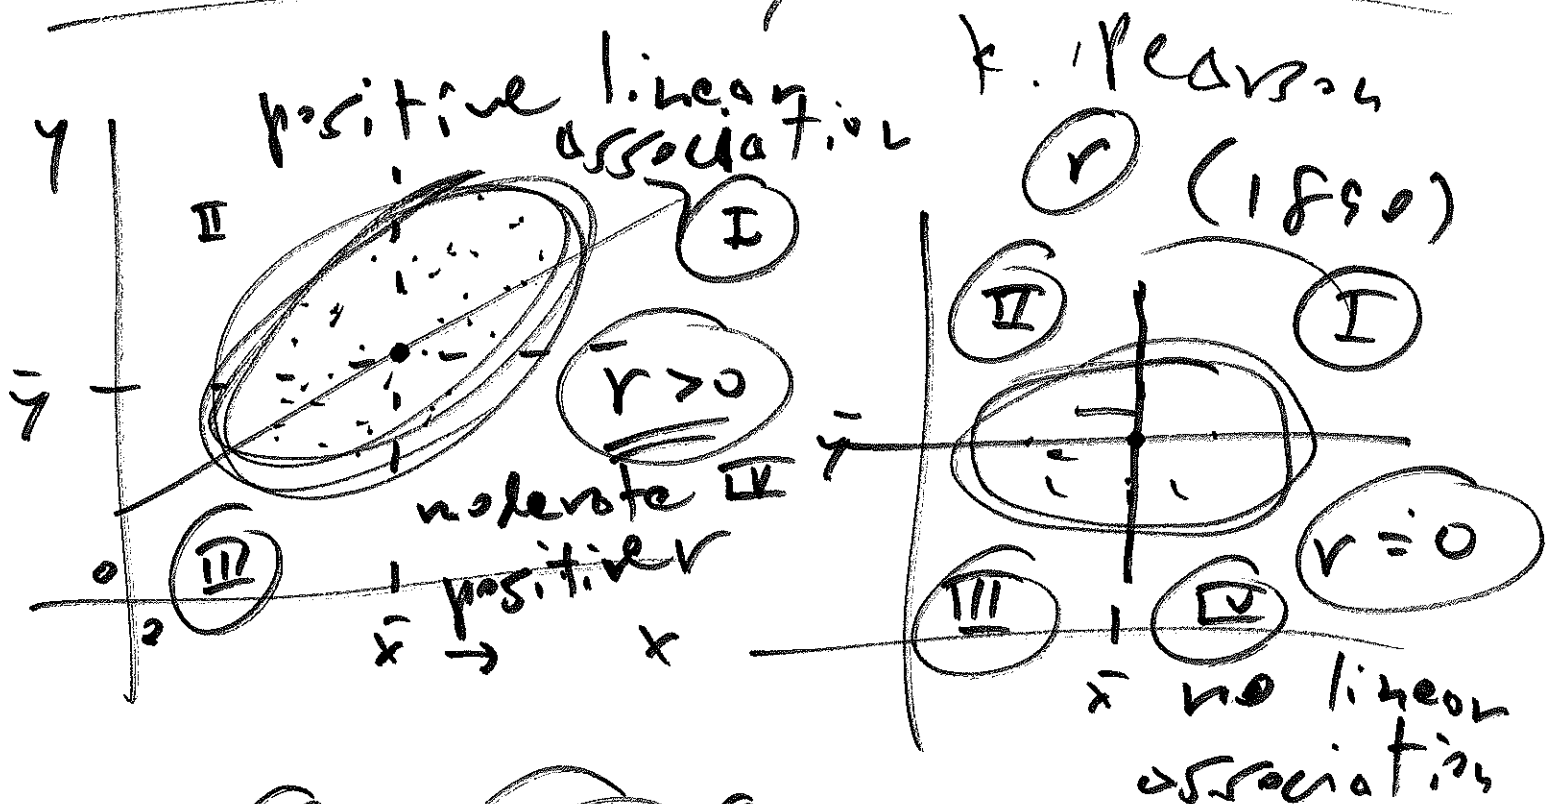 positive linear
association
y
II
I
r > 0
ȳ
moderate
positive r
IV
III
0
x̄ →
x
K. Pearson
r
(1890)
II
I
ȳ
r ≐ 0
III
IV
x̄
no linear
association